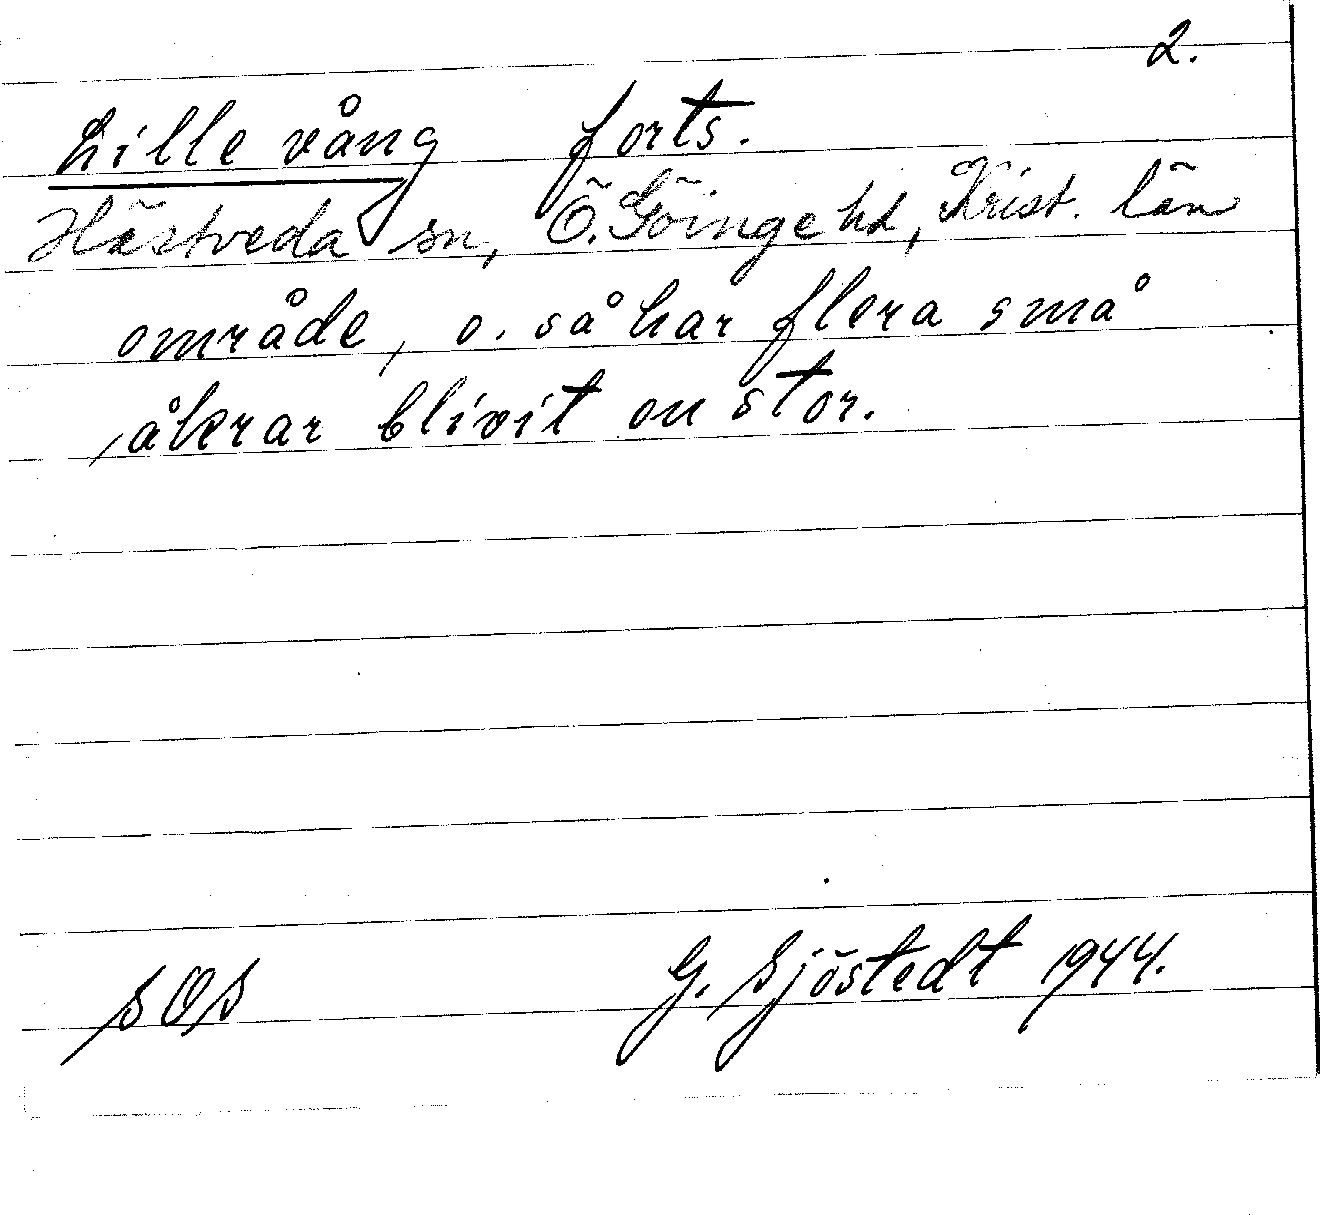 2.
Lille vång forts.
Hästveda sn, Ö. Göinge hd, Krist. län
område, o. så har flera små
åkrar blivit en stor.
SOS G. Sjöstedt 1944.